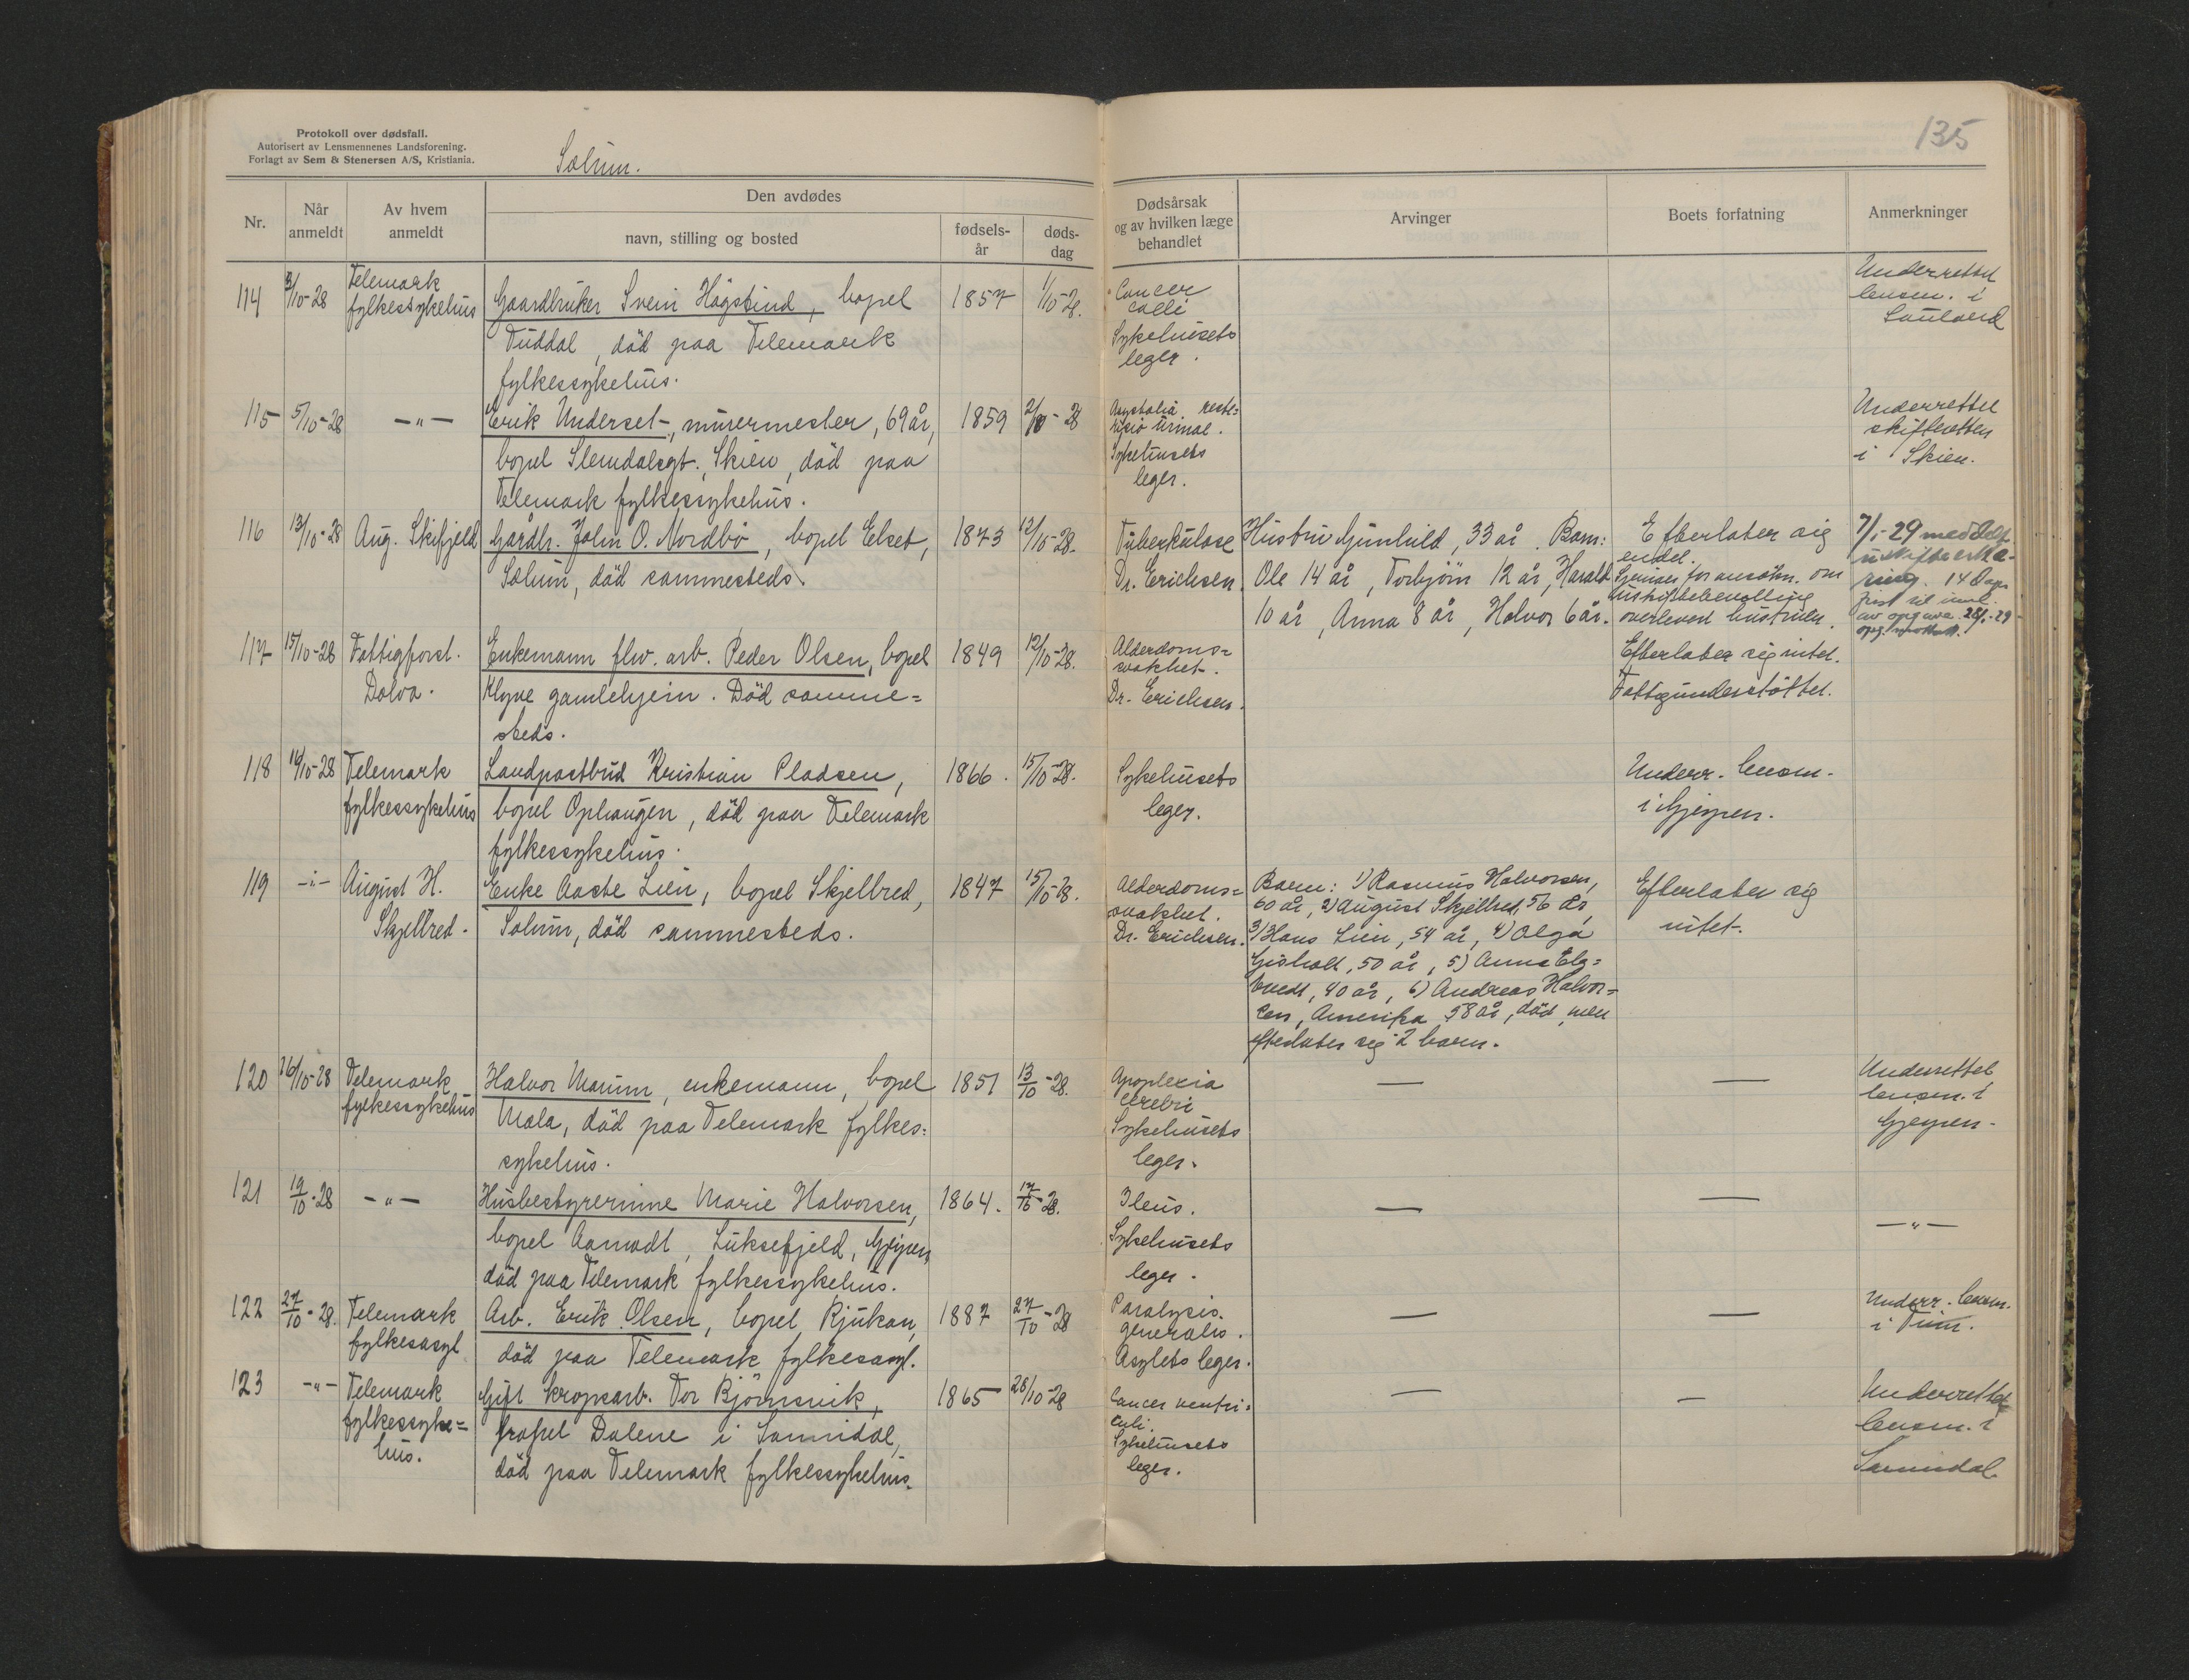 Protokoll over dødsfall.
Autorisert av Lensmennenes Landsforening.
Forlagt av Sem & Stenersen A/S, Kristiania.
Solum.
135
Nr.
Når anmeldt
Av hvem anmeldt
Den avdødes
navn, stilling og bosted
fødsels-
år
døds-
dag
Dødsårsak
og av hvilken læge
behandlet
Arvinger
Boets forfatning
Anmerkninger
114 3/10-28 Telemark fylkessykehus
Gaardbruker Svein Høgstind, bopel
Tuddal, död paa Telemark
fylkessykehus.
1857 1/10-28.
Cancer
colli
Sykehusets
leger.
Underrettet
lensm. i
Sauland
115 5/10-28 -"-
Erik Underset, murermester, 69 år,
bopel Slemdalsgt. Skien, död paa
Telemark fylkessykehus.
1859 2/10-28
urinae.
Sykehusets
leger.
Underrettet
skifteretten
i Skien.
116 13/10-28 Aug. Skifjeld
Gårdbr. John O. Nordbö, bopel Elset,
Solum, död sammesteds.
1873 12/10-28.
Tuberkulose
Dr. Erichsen.
Hustru Gunhild, 33 år. Barn:
Ole 14 år, Torbjörn 12 år, Harald
10 år, Anna 8 år, Halvor 6 år.
Efterlater sig
endel.
for ansökn. om
uskiftebevilling
overlevert hustruen.
7/1-29 meddelt
uskifteerklæ-
ring. 14 dags
frist til innl.
av opgave. 28/1-29
opg. mottatt.
117 15/10-28 Fattigforst.
Dolva.
Enkemann flv. arb. Peder Olsen, bopel
Klyve gamlehjem. Död samme=
steds.
1849 12/10-28.
Alderdoms=
svakhet.
Dr. Erichsen.
Efterlater sig intet.
Fattigunderstöttet.
118 16/10-28 Telemark
fylkessykehus
Landpostbud Kristian Pladsen,
bopel Ophaugen, död paa Telemark
fylkessykehus.
1866. 15/10-28.
Sykehusets
leger.
Underr. lensm.
i Gjerpen.
119 -"- August H.
Skjelbred.
Enke Aaste Lien, bopel Skjelbred,
Solum, död sammesteds.
1847 15/10-28.
Alderdoms=
svakhet.
Dr. Erichsen.
Barn: 1) Rasmus Halvorsen,
60 år, 2) August Skjelbred, 56 år,
3) Hans Lien, 54 år, 4) Olga
Gisholt, 50 år, 5) Anna Elg=
tvedt, 40 år, 6) Andreas Halvor=
sen, Amerika 58 år, död, men
efterlater sig 2 barn.
Efterlater sig
intet.
120 16/10-28 Telemark
fylkessykehus
Halvor Marum, enkemann, bopel
Mæla, död paa Telemark fylkes=
sykehus.
1851 13/10-28.
Apoplexia
cerebri
Sykehusets
leger.
—
—
Underrettet
lensm. i
Gjerpen.
121 19/10-28 -"-
Husbestyrerinne Marie Halvorsen,
bopel Aamodt, Luksefjeld, Gjerpen,
död paa Telemark fylkessykehus.
1864. 17/10-28.
Ileus.
Sykehusets
leger.
—
—
-"-
122 27/10-28. Telemark
fylkesasyl
Arb. Erik Olsen, bopel Rjukan,
död paa Telemark fylkesasyl.
1887 27/10-28
Paralysis
generalis.
Asylets leger.
—
—
Underr. lensm.
i Tinn.
123 -"- Telemark
fylkessyke=
hus.
Gift kropsarb. Tor Björnsvik,
bopel Dalene i Sannidal,
död paa Telemark fylkessykehus.
1865 28/10-28
Cancer ventri=
culi.
Sykehusets
leger.
—
—
Underrettet
lensm. i
Sannidal